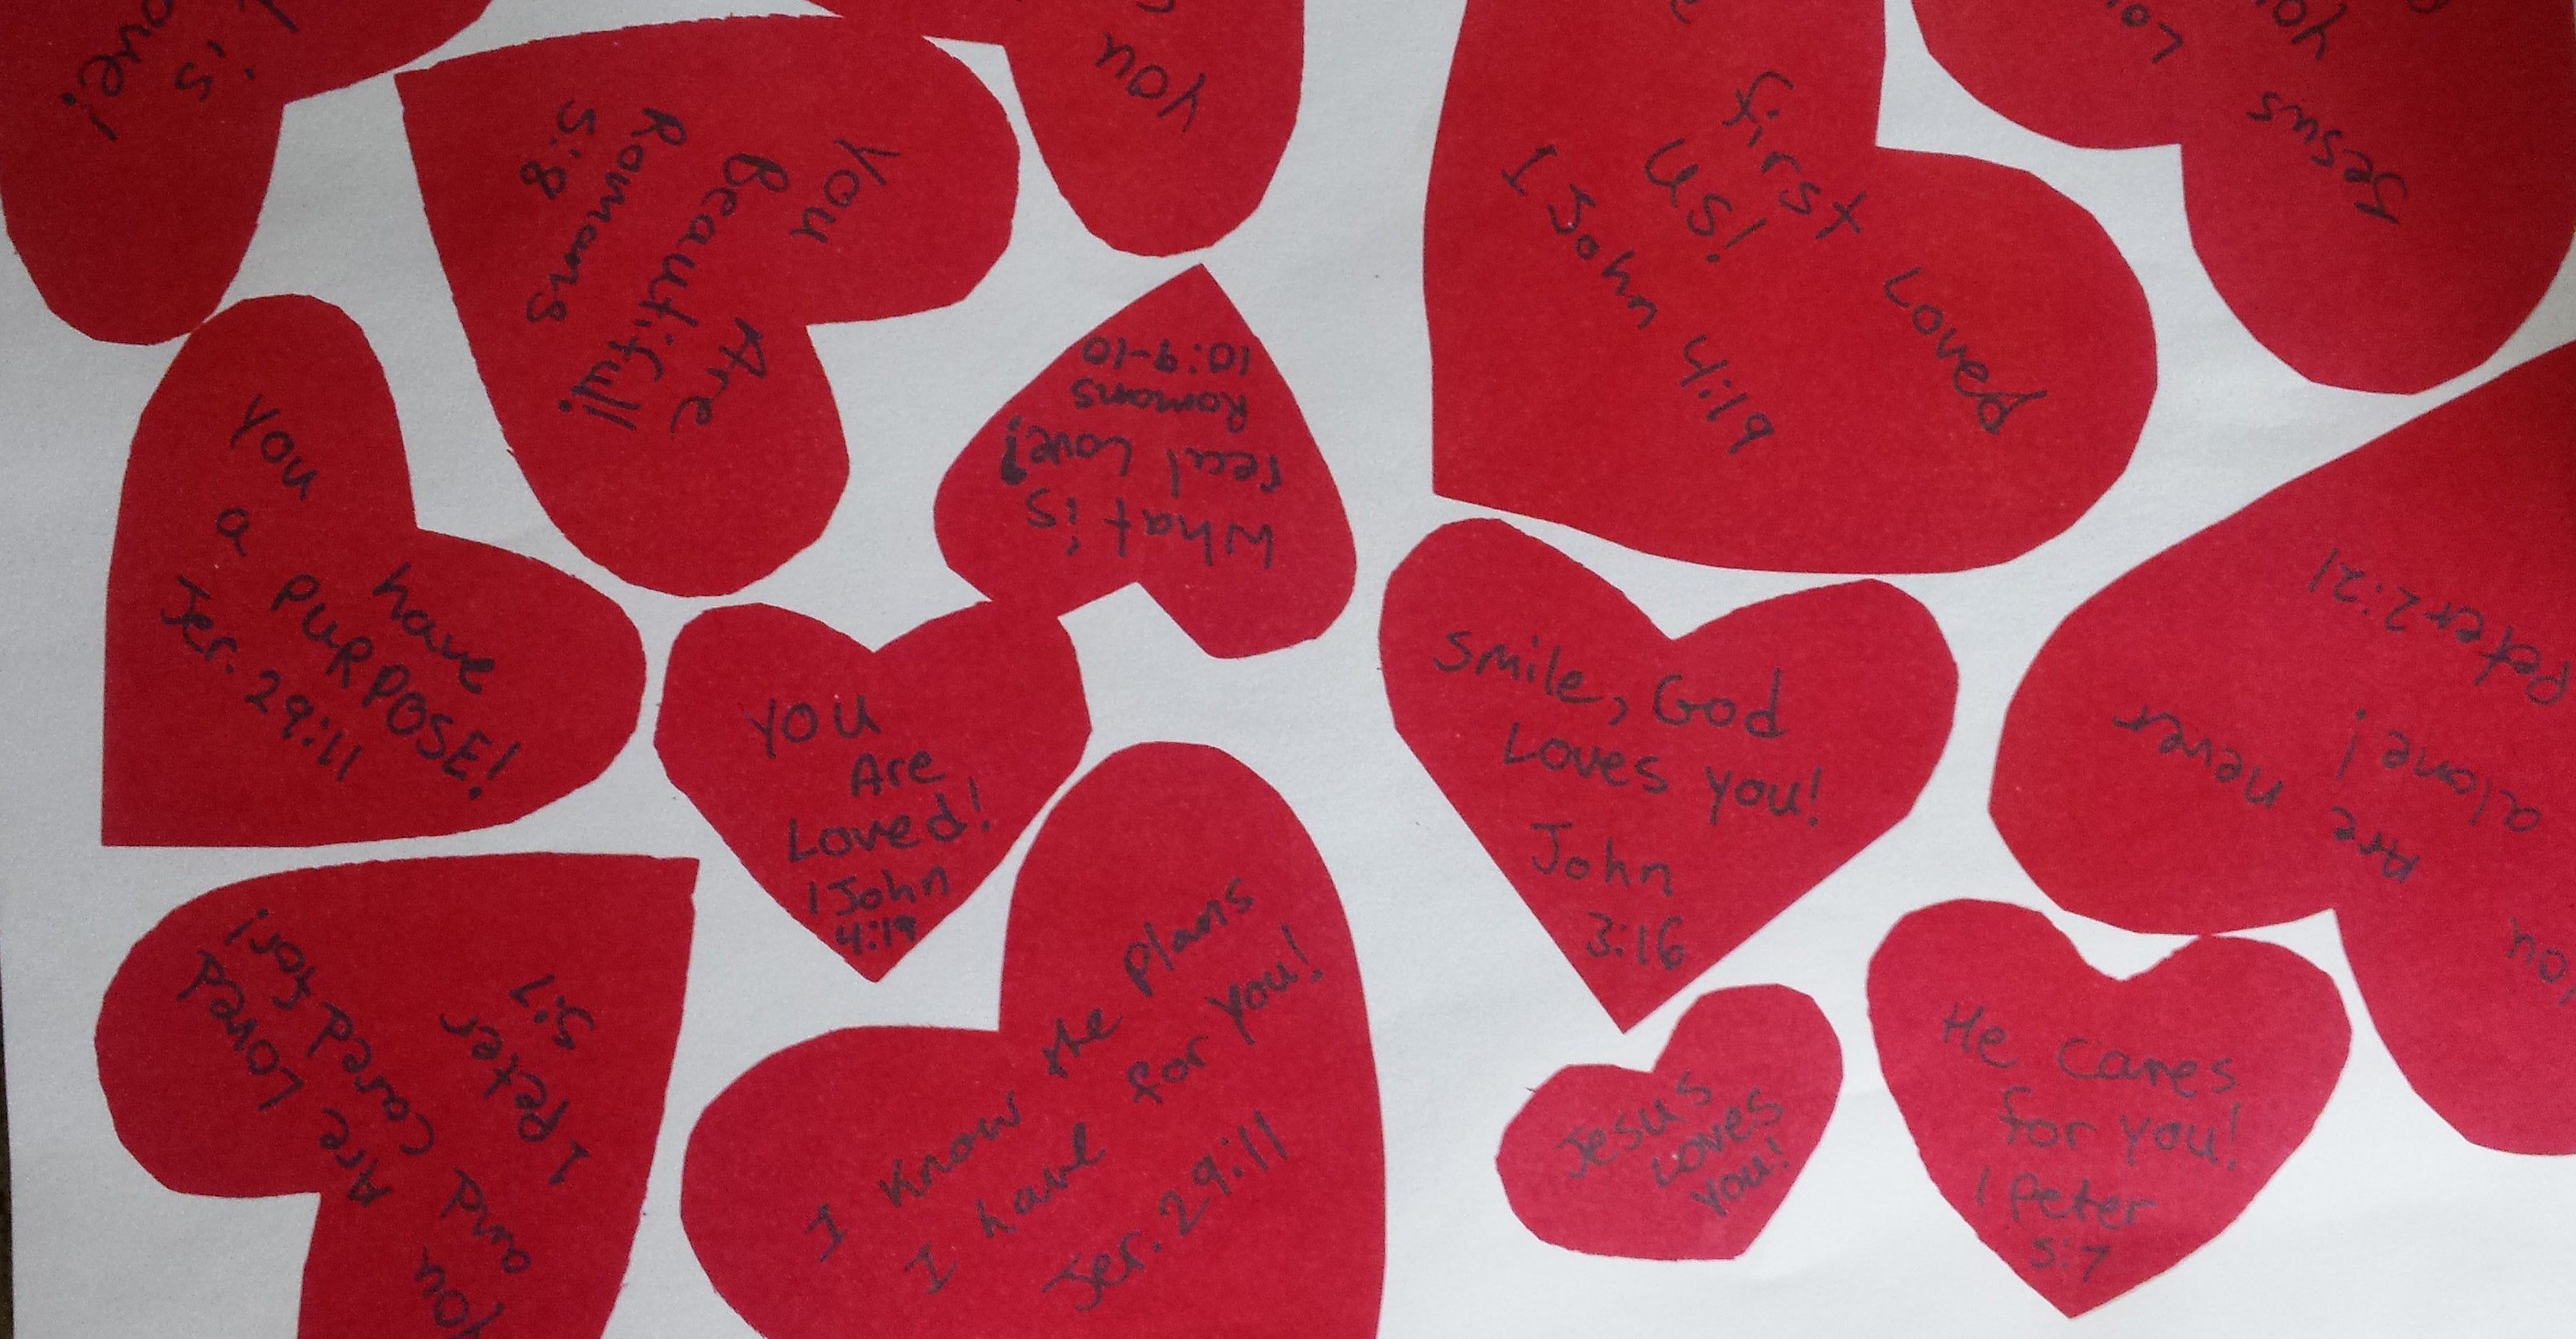 is
You
Are
Beautiful!
Romans
5:8
you
first Loved
us!
I John 4:19
Jesus
What is
real Love?
Romans
10:9-10
You have
a PURPOSE!
Jer. 29:11
You
Are
Loved!
1 John
4:19
Smile, God
Loves you!
John
3:16
you
Are never
alone!
Peter 2:21
You
Are Loved
and cared for!
1 Peter
5:7
I know the plans
I have for you!
Jer. 29:11
Jesus
Loves
you!
He cares
for you!
1 Peter
5:7